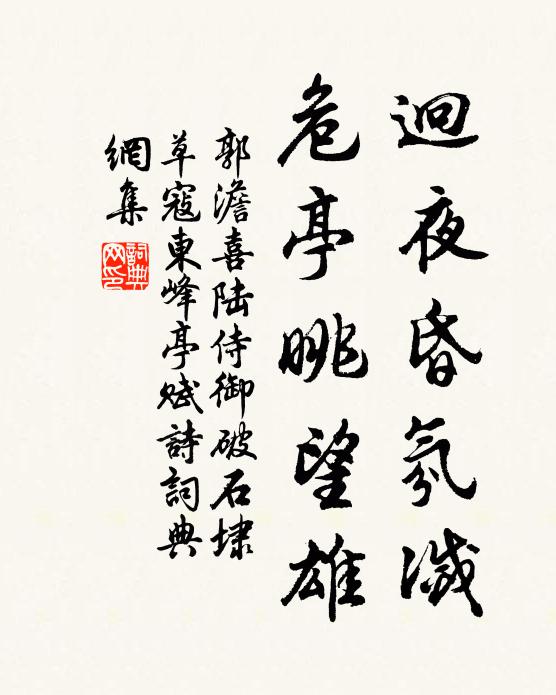 迥夜昏氛滅
危亭眺望雄
郭澹喜陸侍御破石埭
草寇東峰亭賦詩詞典
網集
詞典
網印